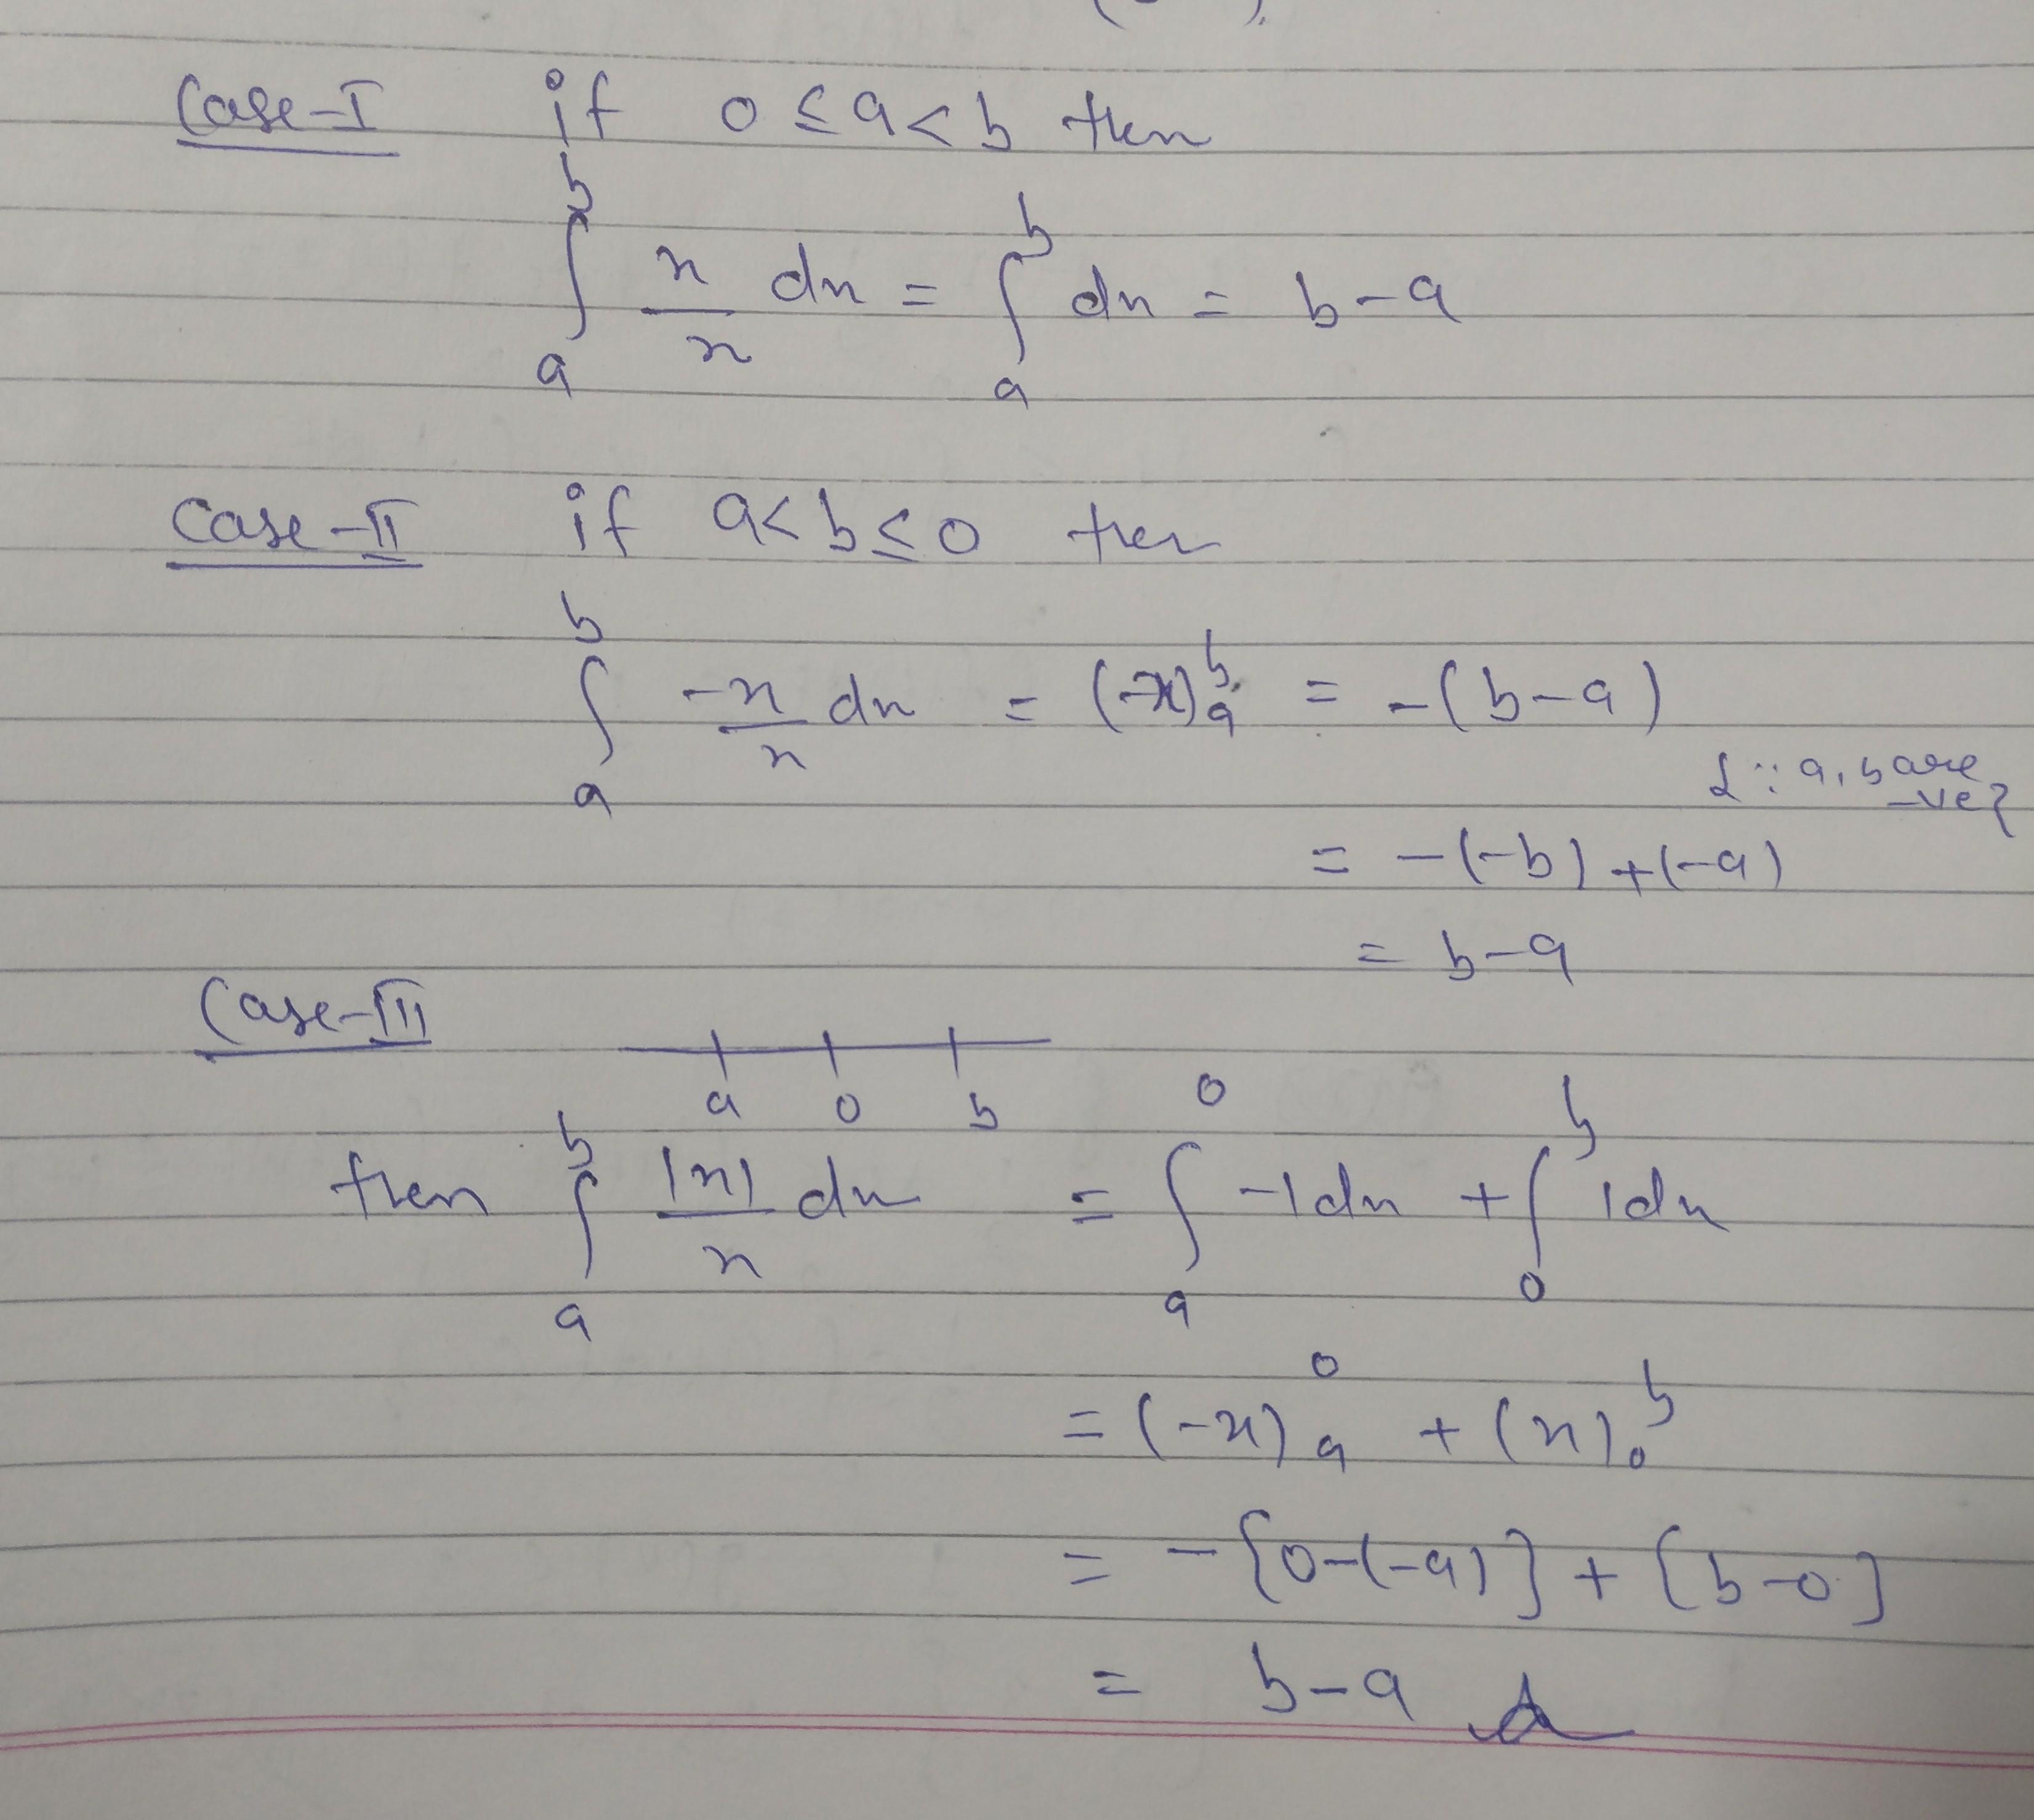 Case-I if 0 ≤ a < b then
∫_a^b x/x dx = ∫_a^b dx = b-a
Case-II if a < b ≤ 0 then
∫_a^b -x/x dx = (-x)_a^b = -(b-a)
{∵ a, b are -ve}
= -(-b) + (-a)
= b-a
Case-III
a 0 b
then ∫_a^b |x|/x dx = ∫_a^0 -1dx + ∫_0^b 1dx
= (-x)_a^0 + (x)_0^b
= -{0-(-a)} + {b-0}
= b-a